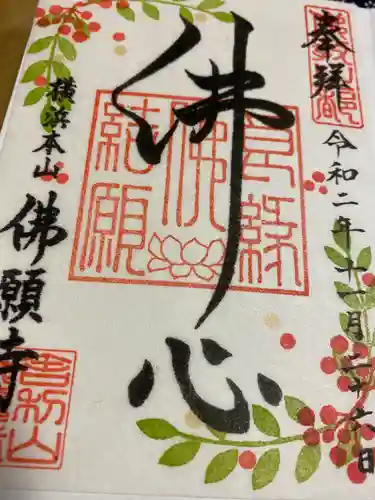 奉拝
令和二年十一月二十六日
佛心
横浜本山
佛願寺